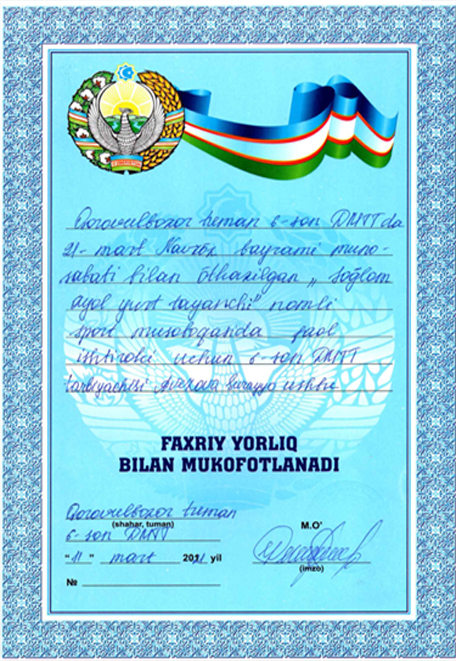 Qorovulbozor tuman 6-son DMTT da
21- mart Navro'z bayrami muno-
sabati bilan o'tkazilgan „ Sog'lom
ayol yurt tayanchi" nomli
sport musobaqanda faol
ishtiroki uchun 6-son DMTT
tarbiyachisi Surayyo
FAXRIY YORLIQ
BILAN MUKOFOTLANADI
Qorovulbozor tuman
(shahar, tuman)
6-son DMTT
M.O'
"11" mart 2021 yil
(imzo)
№